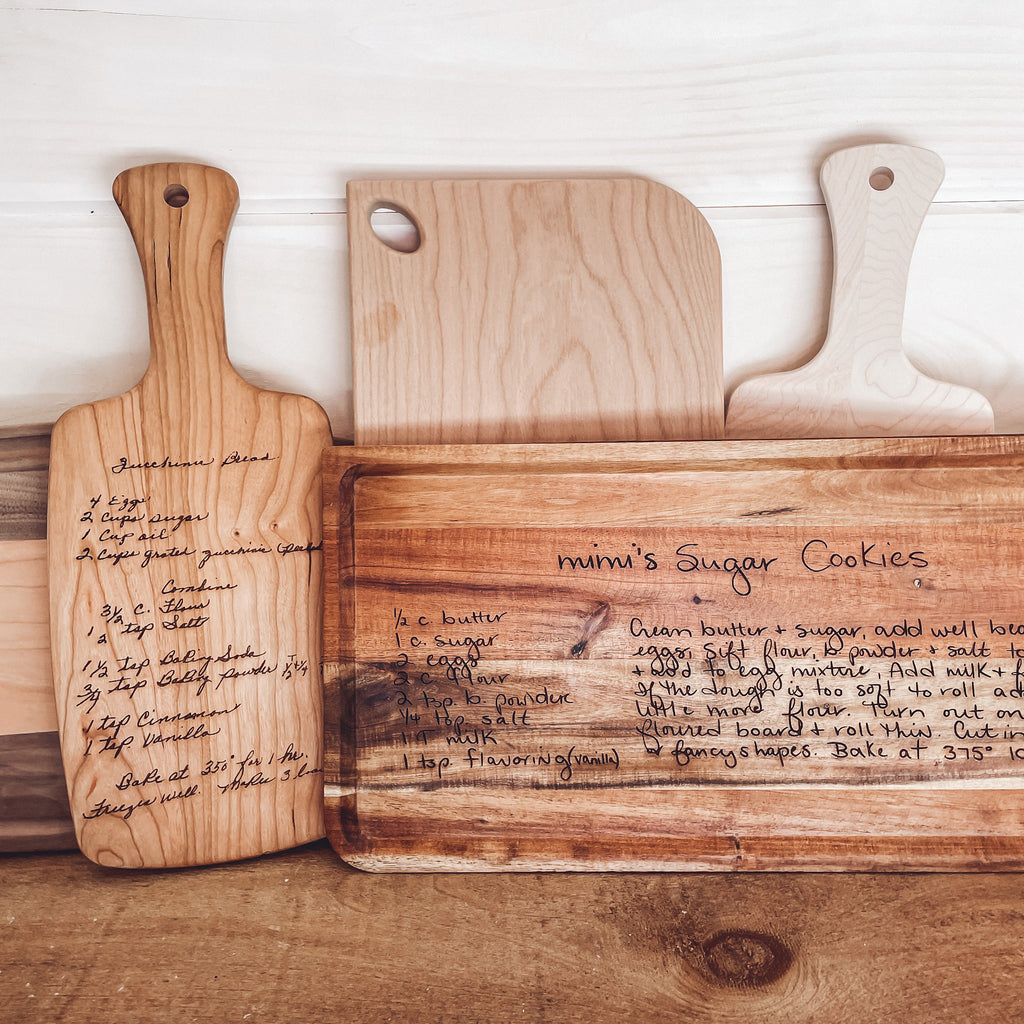 Zucchini Bread
4 Eggs
2 Cups sugar
1 Cup oil
2 Cups grated zucchini
Combine
3½ C. Flour
1 tsp Salt
1½ tsp Baking Soda
3/4 tsp Baking powder
1 tsp Cinnamon
1 tsp Vanilla
Bake at 350° for 1 hr.
Freezes well. Makes 3
mimi's Sugar Cookies
½ c butter
1 c. sugar
2 eggs
2 c flour
2 tsp. b. powder
¼ tsp. salt
1 T milk
1 tsp. flavoring (vanilla)
Cream butter + sugar, add well
eggs, sift flour, b powder + salt
+ add to egg mixture, Add milk +
If the dough is too soft to roll
little more flour. Turn out on
floured board + roll thin. Cut in
fancy shapes. Bake at 375°